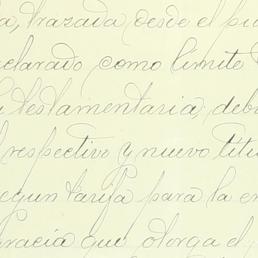 a, trazada desde el pu
eclarado como límite
testamentaria, deb
respectivo y nuevo títu
egun tarifa para la e
gracia que otorga el